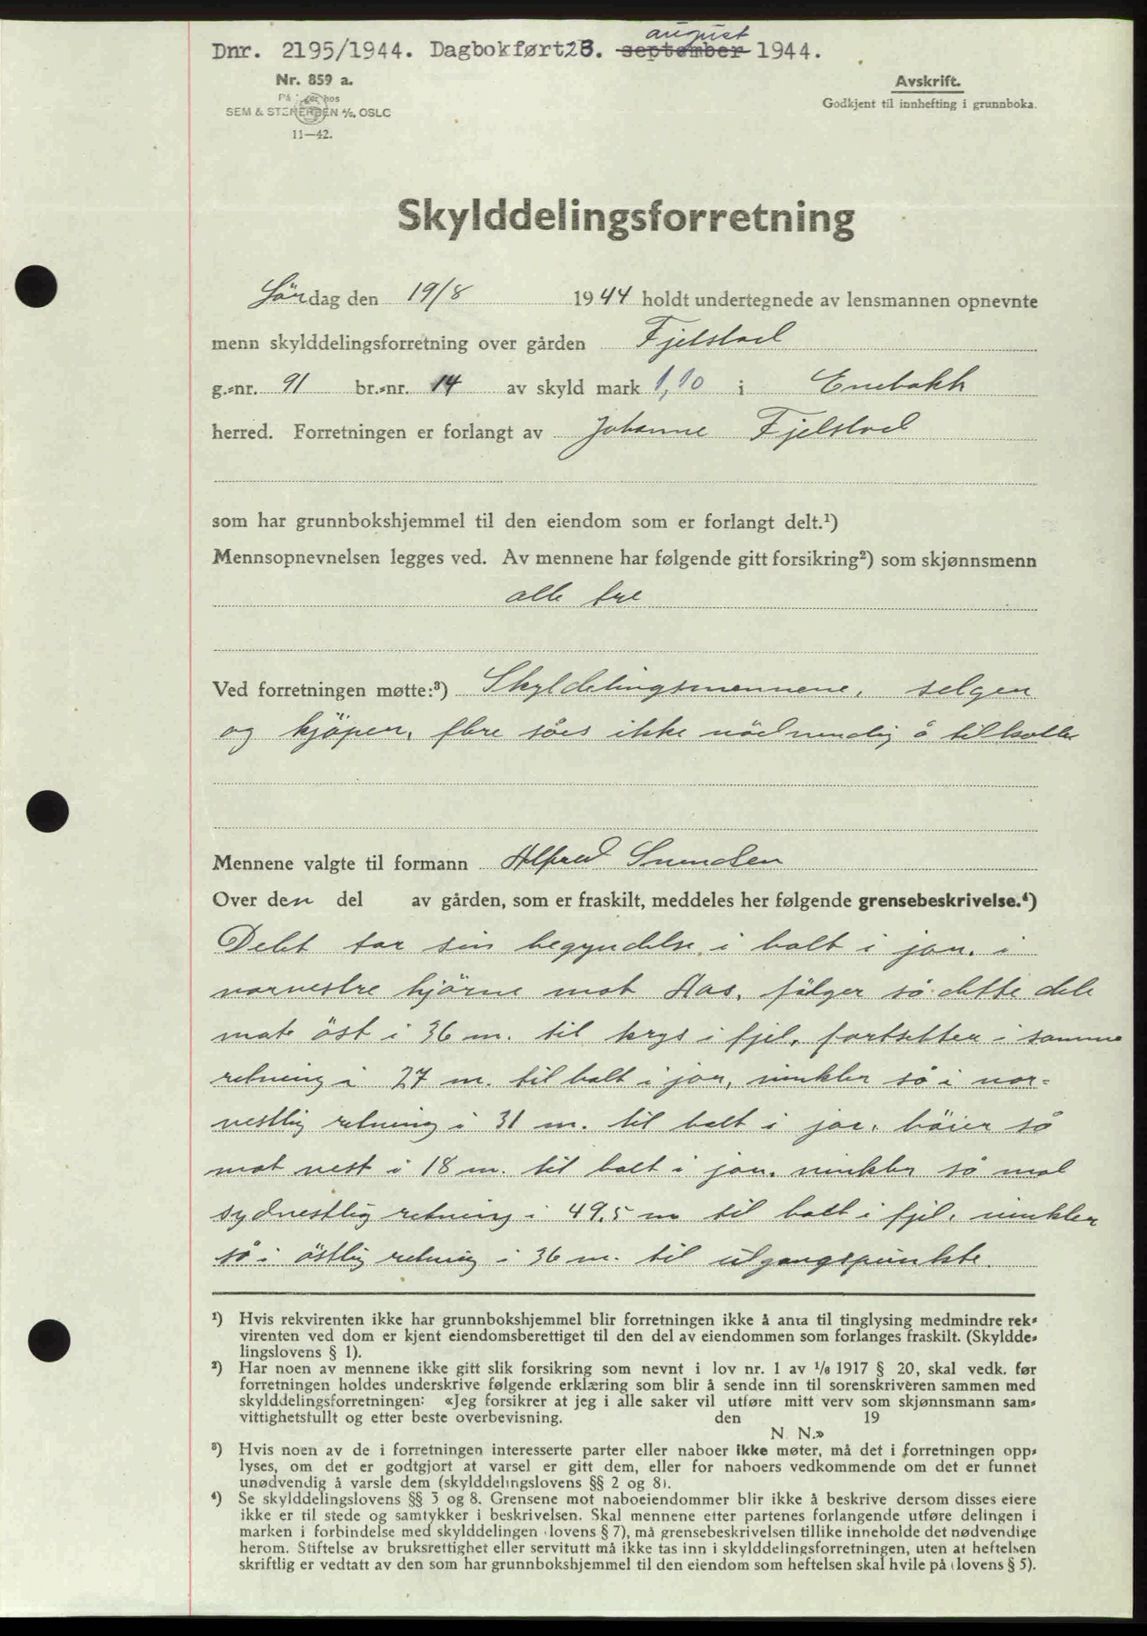 august
Dnr. 2195/1944. Dagbokført 28. september 1944.
Nr. 859 a.
På lager hos
SEM & STENERSEN A/S, OSLO
11—42.
Avskrift.
Godkjent til innhefting i grunnboka.
Skylddelingsforretning
Lördag den 19/8 1944 holdt undertegnede av lensmannen opnevnte
menn skylddelingsforretning over gården Fjelstad
g.=nr. 91 br.=nr. 14 av skyld mark 1,10 i Enebakk
herred. Forretningen er forlangt av Johanne Fjelstad
som har grunnbokshjemmel til den eiendom som er forlangt delt.¹)
Mennsopnevnelsen legges ved. Av mennene har følgende gitt forsikring²) som skjønnsmenn
alle tre
Ved forretningen møtte:³) Skyldelingsmennene, selger
og kjöper, flere såes ikke nödvendig å tilkalle
Mennene valgte til formann Alfred Svendsen
Over den del av gården, som er fraskilt, meddeles her følgende grensebeskrivelse.⁴)
Delet tar sin begyndelse i bolt i jor, i
norvestre hjörne mot Aas, fölger så dette dele
mot öst i 36 m. til kryss i fjel, fortsetter i samme
retning i 27 m. til bolt i jor, vinkler så i nor=
vestlig retning i 31 m. til bolt i jor, böier så
mot vest i 18 m. til bolt i jor, vinkler så mot
sydvestlig retning i 49,5 m til bolt i fjel, vinkler
så i östlig retning i 36 m. til utgangspunkte.
¹) Hvis rekvirenten ikke har grunnbokshjemmel blir forretningen ikke å anta til tinglysing medmindre rek=
virenten ved dom er kjent eiendomsberettiget til den del av eiendommen som forlanges fraskilt. (Skyldde=
lingslovens § 1).
²) Har noen av mennene ikke gitt slik forsikring som nevnt i lov nr. 1 av 1/6 1917 § 20, skal vedk. før
forretningen holdes underskrive følgende erklæring som blir å sende inn til sorenskriveren sammen med
skylddelingsforretningen: «Jeg forsikrer at jeg i alle saker vil utføre mitt verv som skjønnsmann sam=
vittighetsfullt og etter beste overbevisning. den 19
N. N.»
³) Hvis noen av de i forretningen interesserte parter eller naboer ikke møter, må det i forretningen opp=
lyses, om det er godtgjort at varsel er gitt dem, eller for naboers vedkommende om det er funnet
unødvendig å varsle dem (skylddelingslovens §§ 2 og 8).
⁴) Se skylddelingslovens §§ 3 og 8. Grensene mot naboeiendommer blir ikke å beskrive dersom disses eiere
ikke er til stede og samtykker i beskrivelsen. Skal mennene etter partenes forlangende utføre delingen i
marken i forbindelse med skylddelingen (lovens § 7), må grensebeskrivelsen tillike inneholde det nødvendige
herom. Stiftelse av bruksrettighet eller servitutt må ikke tas inn i skylddelingsforretningen, uten at heftelsen
skriftlig er vedtatt av den som har grunnbokshjemmel til den eiendom som heftelsen skal hvile på (lovens § 5).